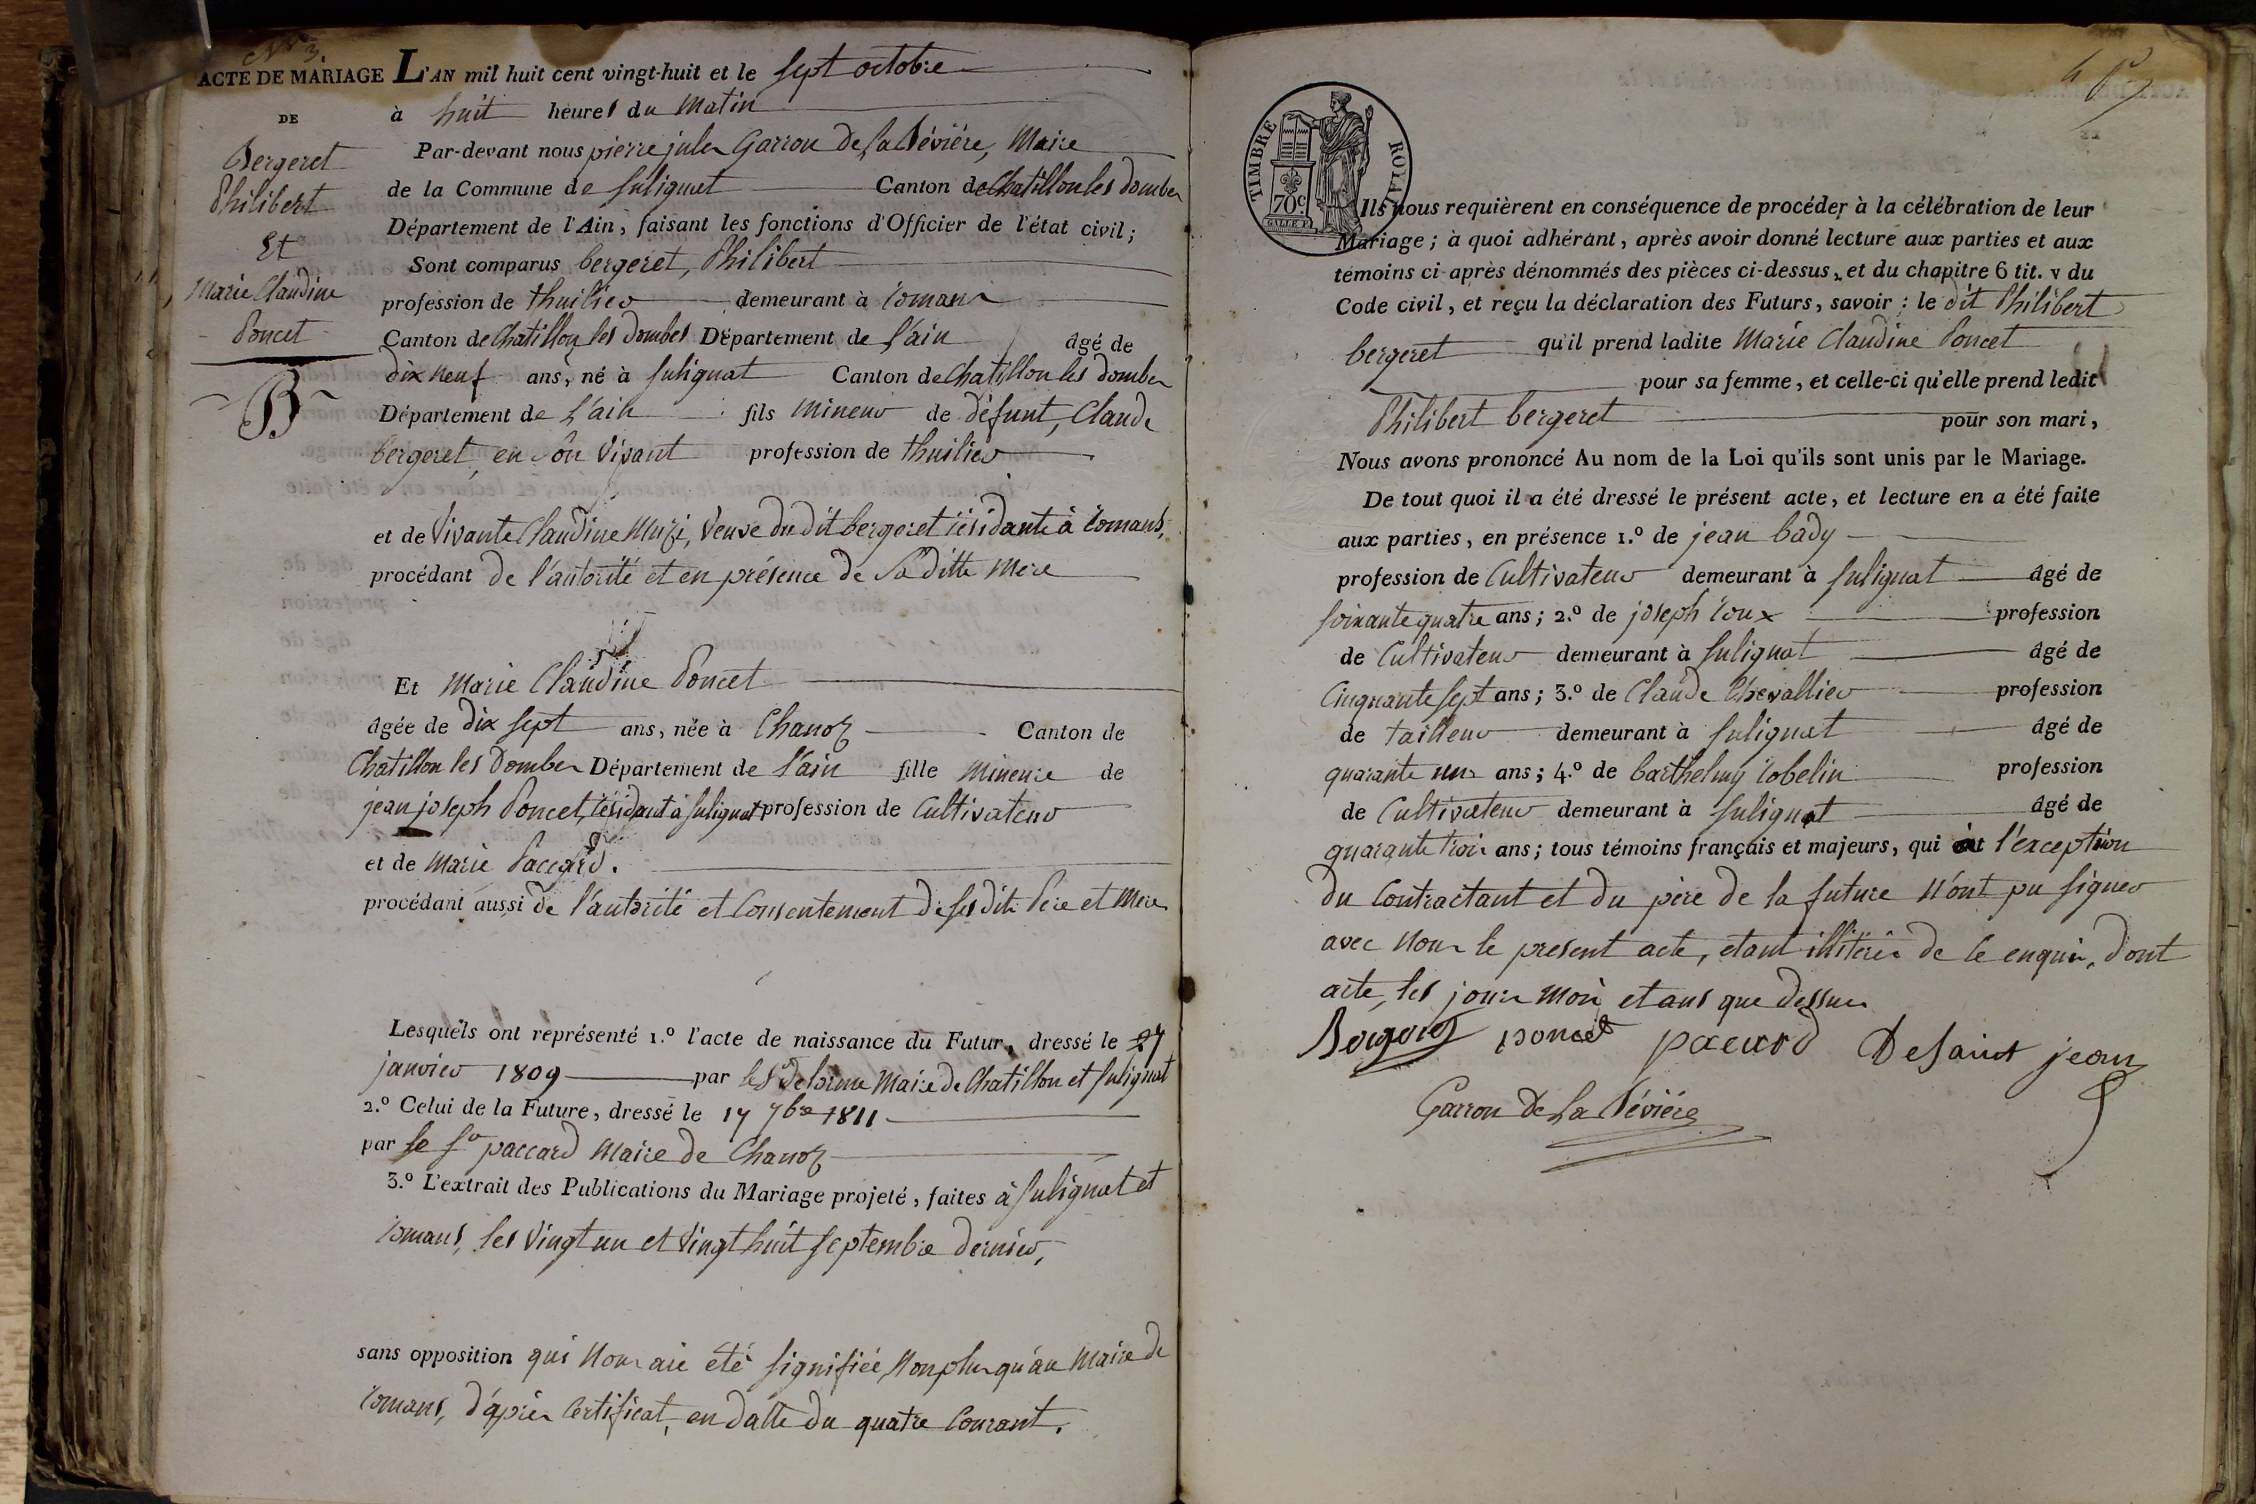 N° 3
ACTE DE MARIAGE
DE
Bergeret
Philibert
Et
Marie Claudine
Poncet
B
L'AN mil huit cent vingt-huit et le sept octobre
à huit heures du matin
Par-devant nous pierre jules Garron de la Bévière, Maire
de la Commune de Sulignat Canton de Chatillon les dombes
Département de l'Ain, faisant les fonctions d'Officier de l'état civil ;
Sont comparus bergeret, Philibert
profession de thuilier demeurant à romans
Canton de Chatillon les dombes Département de l'ain âgé de
dix neuf ans, né à Sulignat Canton de Chatillon les dombes
Département de l'ain fils mineur de défunt, Claude
bergeret, en son vivant profession de thuilier
et de vivante Claudine Muzi, veuve du dit bergeret résidante à romans,
procédant de l'autorité et en présence de Sa ditte mere
Et Marie Claudine Poncet
âgée de dix sept ans, née à Chanoz Canton de
Chatillon les dombes Département de l'ain fille mineure de
jean joseph Poncet, résidant à Sulignat profession de Cultivateur
et de marie Paccard.
procédant aussi de l'autorité et consentement de ses dits Pere et Mere
Lesquels ont représenté 1.º l'acte de naissance du Futur, dressé le 27
janvier 1809 par le Sr delorme Maire de Chatillon et Sulignat
2.º Celui de la Future, dressé le 17 7bre 1811
par le Sr paccard maire de Chanoz
3.º L'extrait des Publications du Mariage projeté, faites à Sulignat et
romans, les vingt un et vingt huit septembre dernier,
sans opposition qui nous aie été signifiée, non plus qu'au Maire de
romans, d'après Certificat, en datte du quatre Courant.
TIMBRE ROYAL
70 c.
Ils nous requièrent en conséquence de procéder à la célébration de leur
Mariage ; à quoi adhérant, après avoir donné lecture aux parties et aux
témoins ci-après dénommés des pièces ci-dessus, et du chapitre 6 tit. v du
Code civil, et reçu la déclaration des Futurs, savoir : le dit Philibert
bergeret qu'il prend ladite Marie Claudine Poncet
pour sa femme, et celle-ci qu'elle prend ledit
Philibert bergeret pour son mari,
Nous avons prononcé Au nom de la Loi qu'ils sont unis par le Mariage.
De tout quoi il a été dressé le présent acte, et lecture en a été faite
aux parties, en présence 1.º de jean bady
profession de Cultivateur demeurant à Sulignat âgé de
soixante quatre ans ; 2.º de joseph roux profession
de Cultivateur demeurant à Sulignat âgé de
Cinquante sept ans ; 3.º de Claude Chevallier profession
de tailleur demeurant à Sulignat âgé de
quarante un ans ; 4.º de barthelmy robelin profession
de Cultivateur demeurant à Sulignat âgé de
quarante trois ans ; tous témoins français et majeurs, qui à l'exception
du Contractant et du père de la future n'ont pu signer
avec nous le present acte, etant illiterés de ce enquis, dont
acte, les jour mois et ans que dessus
Bergeret poncet pacard Desaint jean
Garron de La Bévière